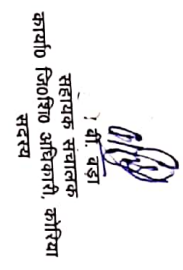 ! बी. बड़ा
सहायक संचालक
कार्या0 जि0शि0 अधिकारी, कोरिया
सदस्य